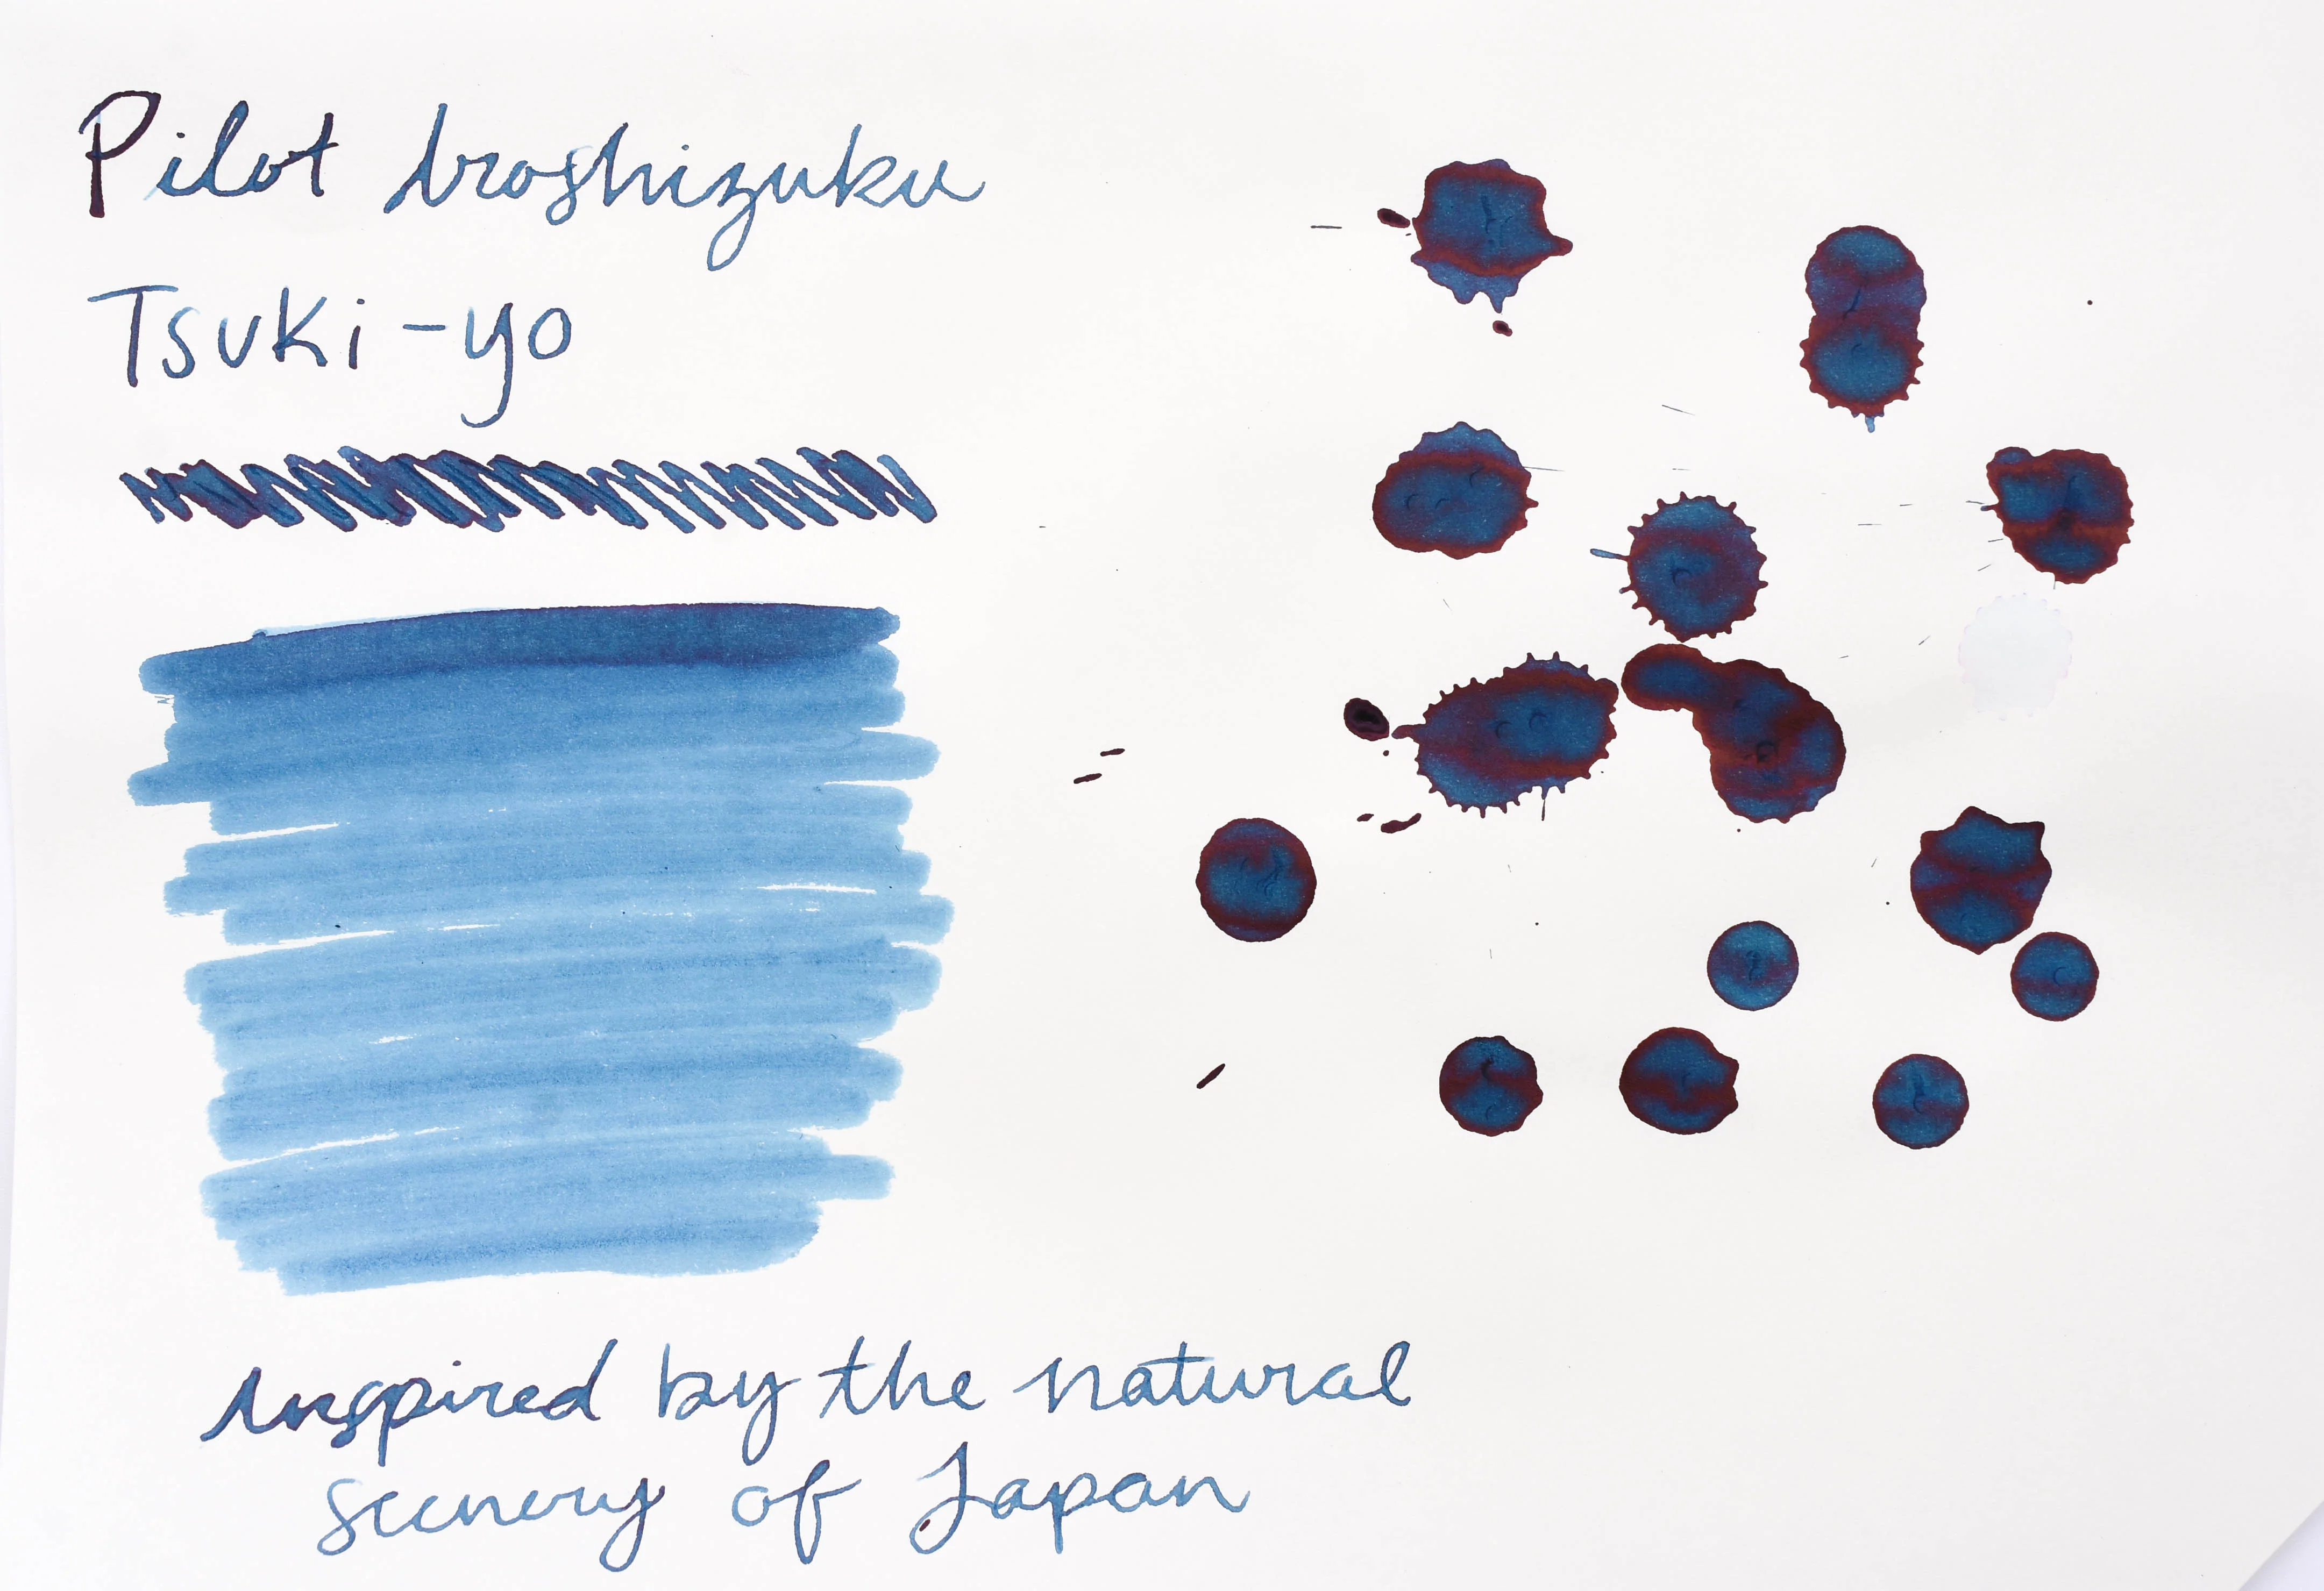 Pilot Iroshizuku
Tsuki-yo
Inspired by the natural
scenery of Japan